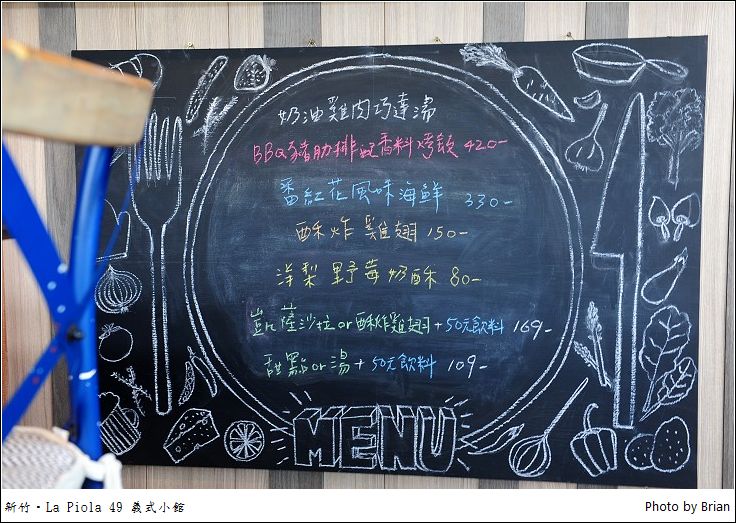 奶油雞肉巧達湯
BBQ豬肋排配香料烤飯 420-
番紅花風味海鮮 330-
酥炸雞翅 150-
洋梨野莓奶酥 80-
凱薩沙拉or酥炸雞翅+50元飲料 169-
甜點or湯+50元飲料 109-
MENU
新竹·La Piola 49 義式小館
Photo by Brian